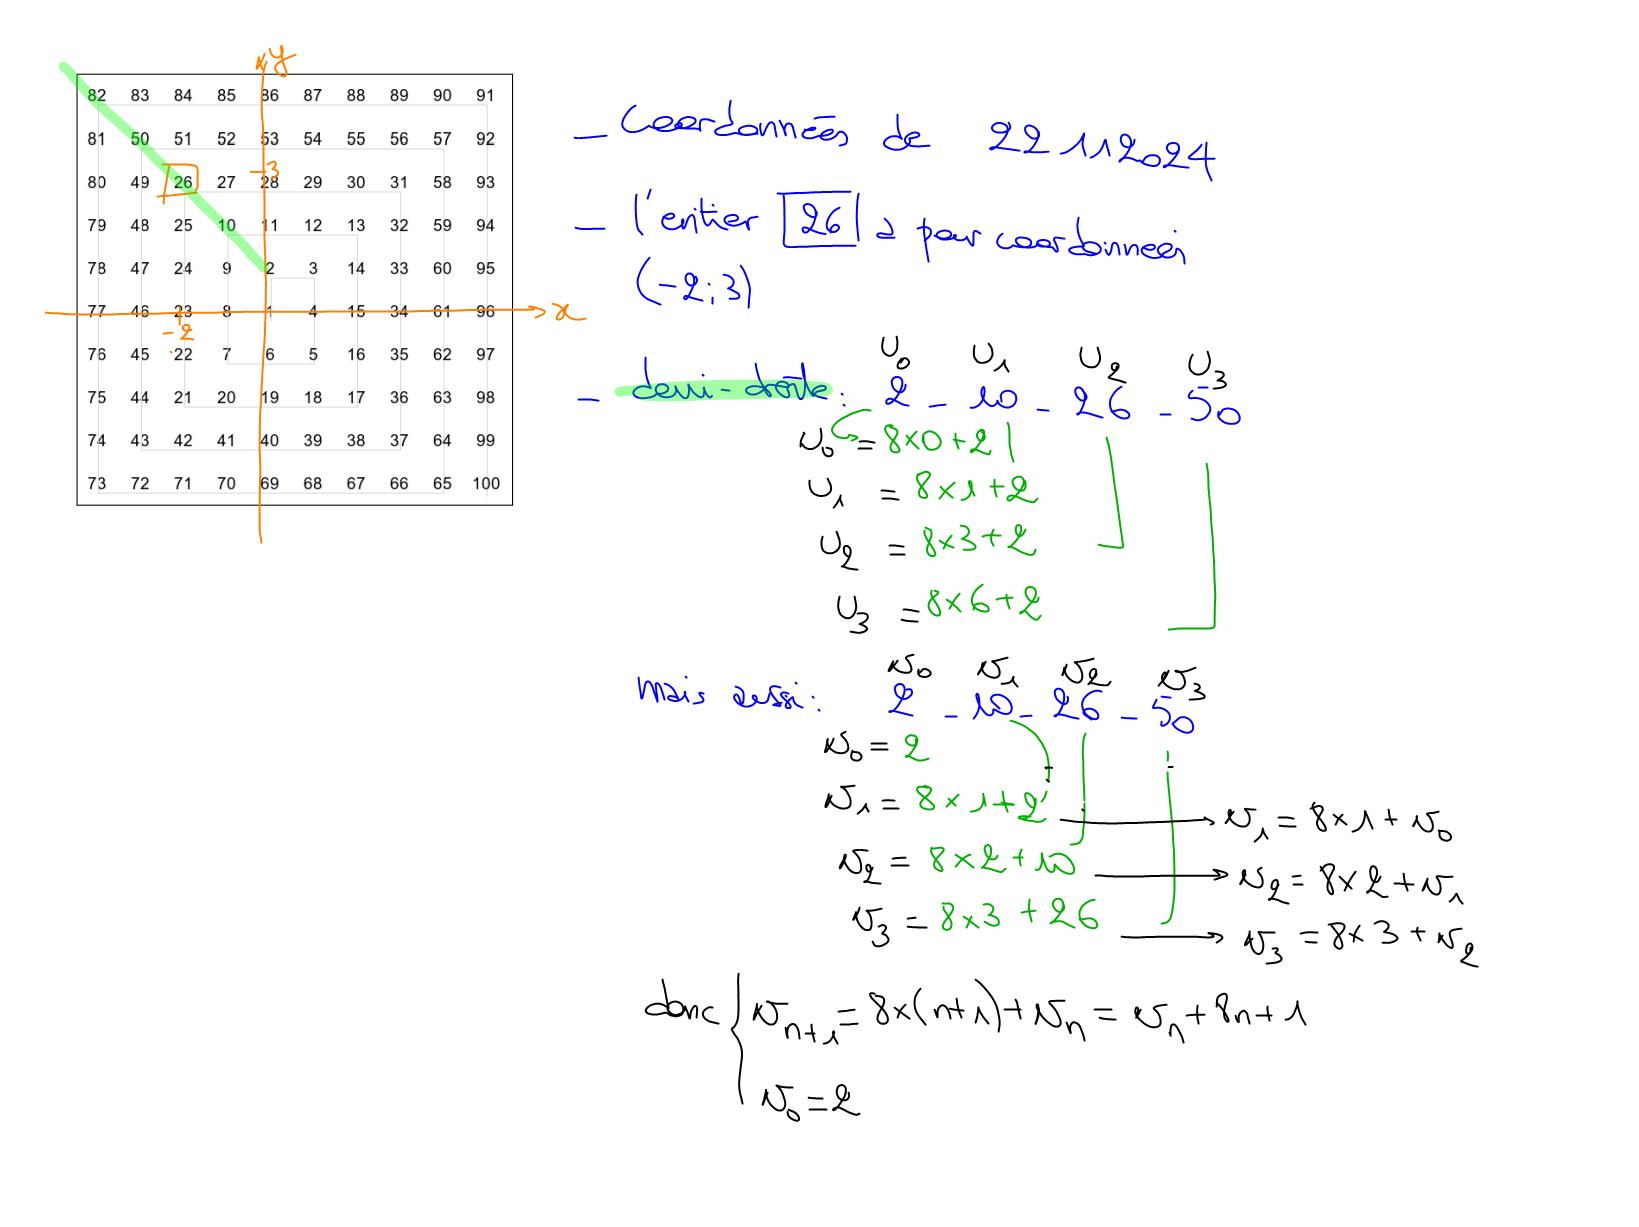 y
82 83 84 85 86 87 88 89 90 91
81 50 51 52 53 54 55 56 57 92
3
80 49 26 27 28 29 30 31 58 93
79 48 25 10 11 12 13 32 59 94
78 47 24 9 2 3 14 33 60 95
77 46 23 8 1 4 15 34 61 96 x
-2
76 45 22 7 6 5 16 35 62 97
75 44 21 20 19 18 17 36 63 98
74 43 42 41 40 39 38 37 64 99
73 72 71 70 69 68 67 66 65 100
- Coordonnées de 22112024
- l'entier 26 a pour coordonnées
(-2;3)
U0 U1 U2 U3
- demi-droite : 2 - 10 - 26 - 50
U0 = 8×0+2
U1 = 8×1+2
U2 = 8×3+2
U3 = 8×6+2
v0 v1 v2 v3
Mais aussi : 2 - 10 - 26 - 50
v0 = 2
v1 = 8×1+2 → v1 = 8×1+v0
v2 = 8×2+10 → v2 = 8×2+v1
v3 = 8×3+26 → v3 = 8×3+v2
donc { vn+1 = 8×(n+1)+vn = vn+8n+1
v0=2